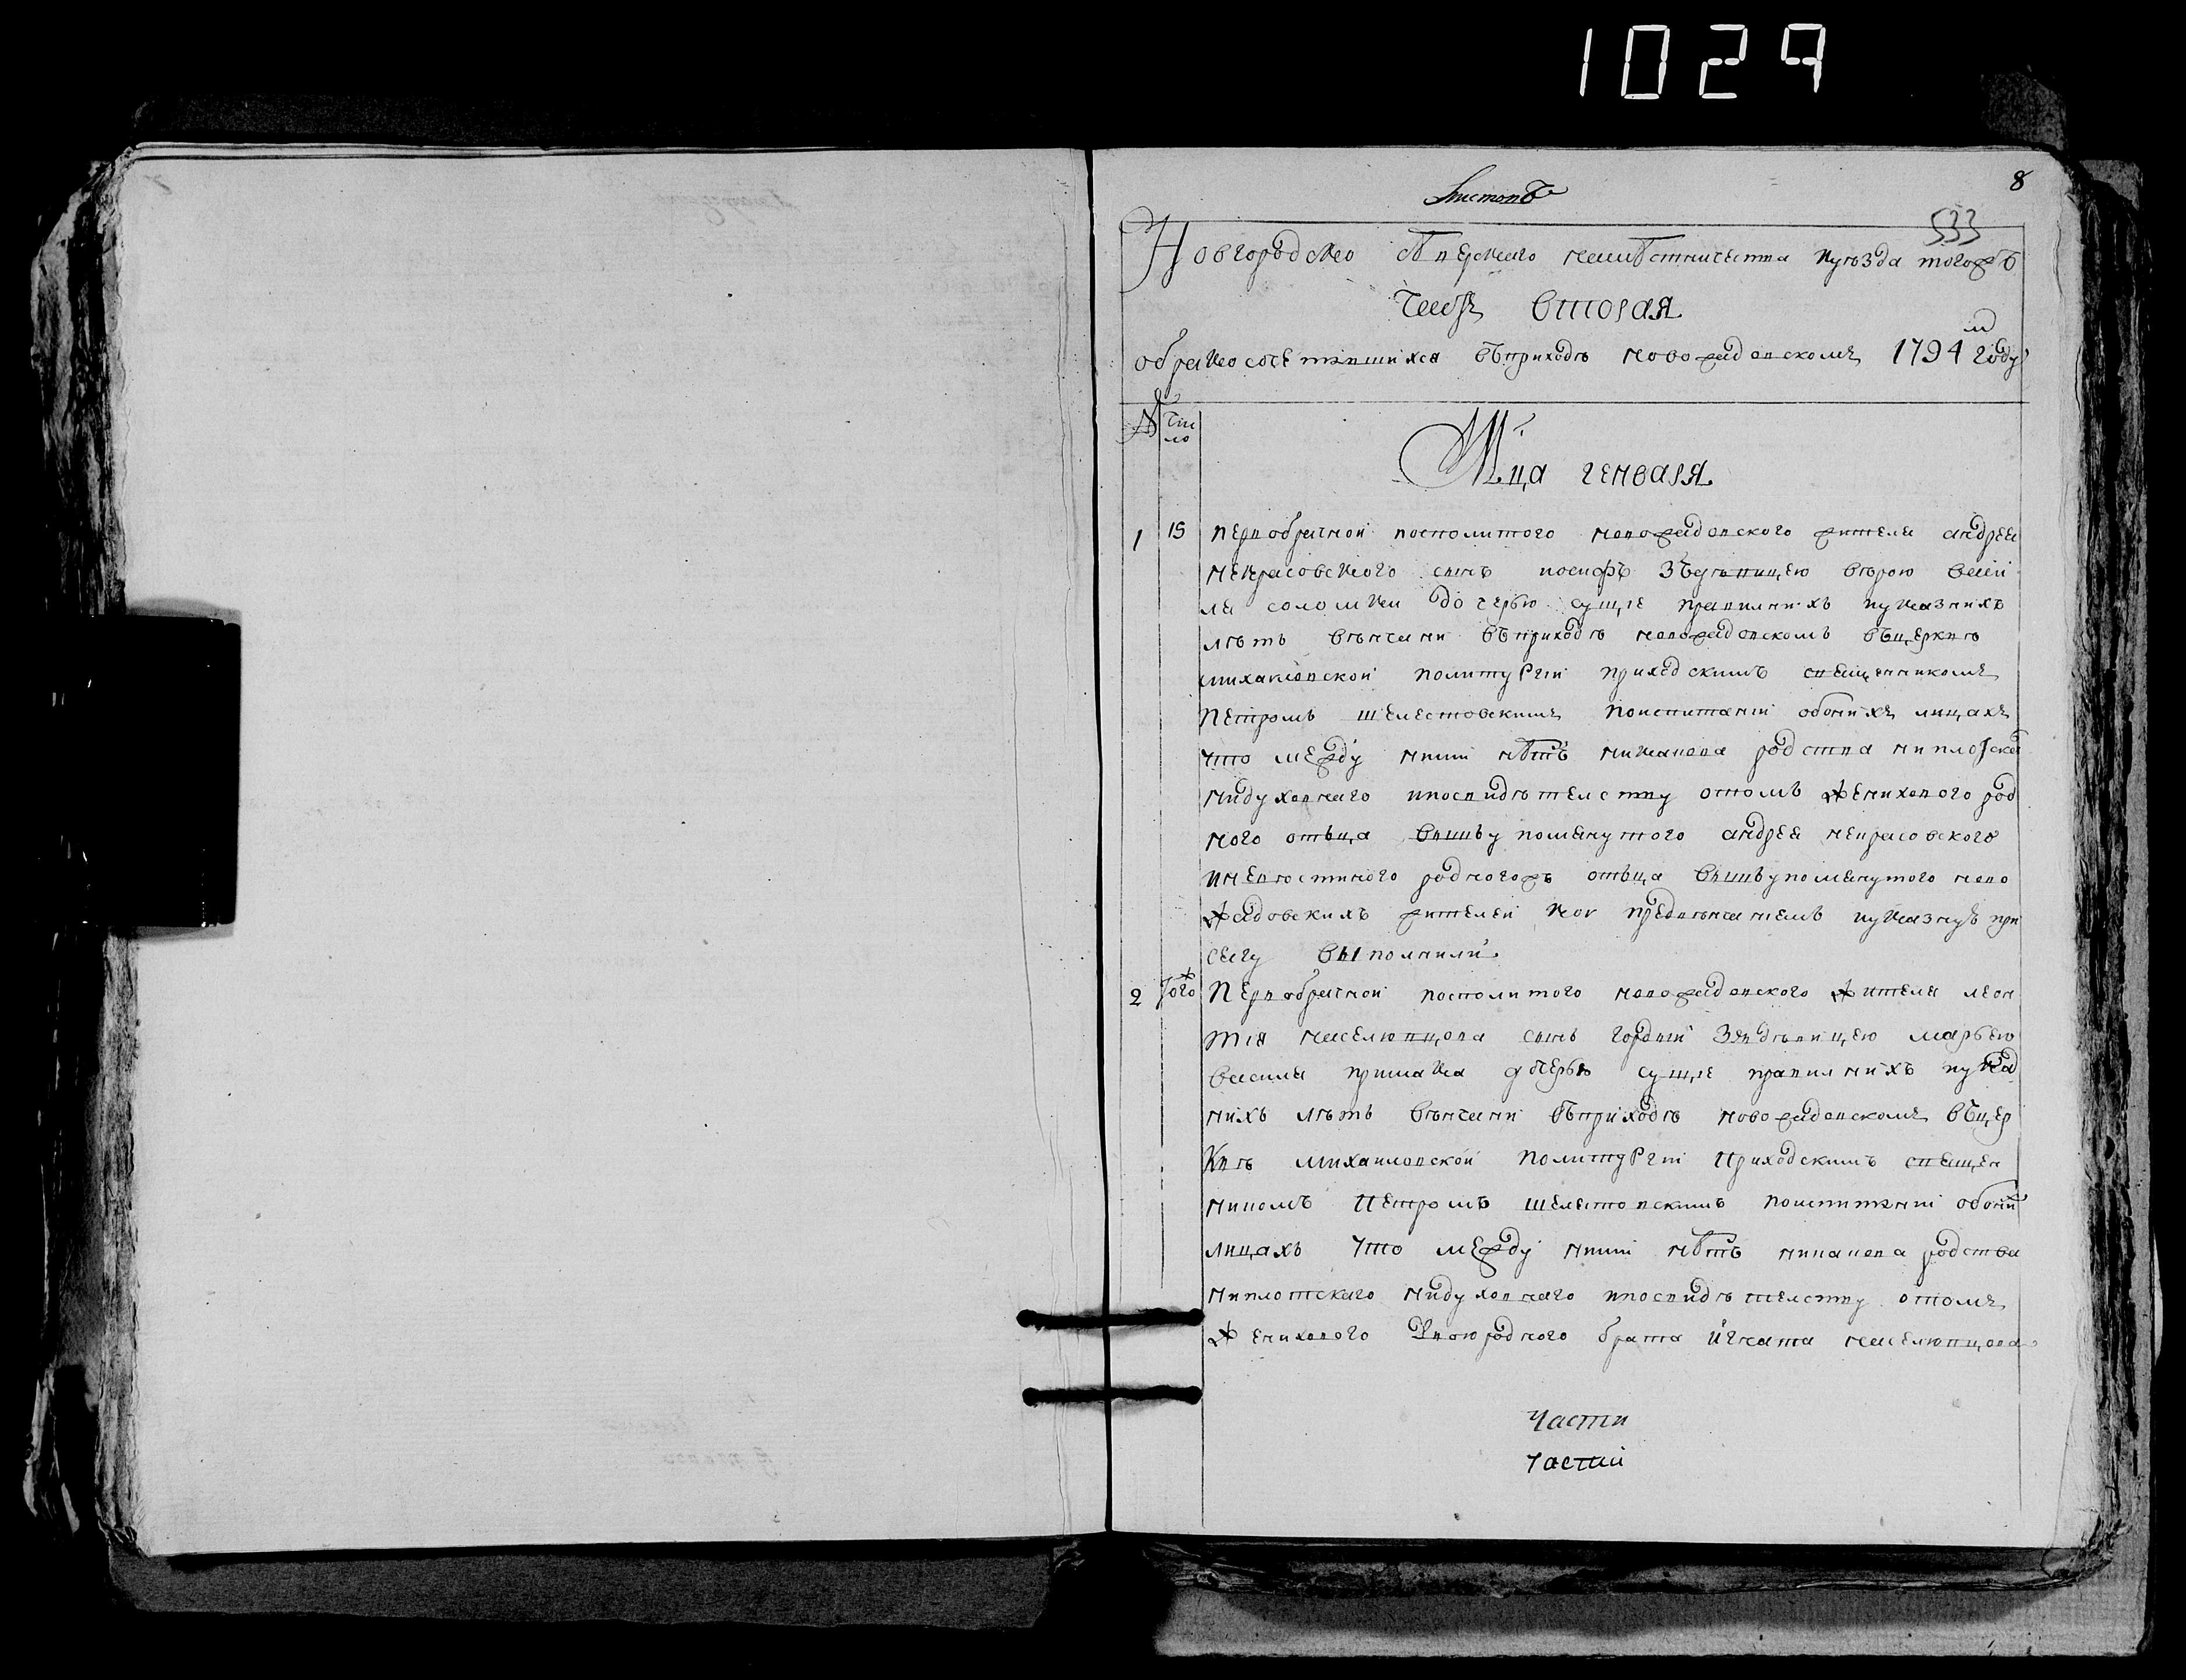 1029
Листовъ
8
533
Новгородско сѣверскаго намѣстничества иуѣзда тогожъ
Часть вторая
обракосочетавшихся въприходѣ новожадовскомъ 1794 м году
№ Число
Мца генваря
1 15 первобрачной посполитого новожадовского жителя андрея
некрасовского синъ иосифъ здѣвицею
соломки дочерью суще правилнихъ иуказнихъ
лѣтъ вѣнчани въприходѣ новожадовскомъ въцерквѣ
михаиловской политургіи приходскимъ священникомъ
Петромъ шелестовскимъ поиспитаніи обоихъ лицахъ
что между ними нѣтъ никакова родства ниплотска
нидуховнаго ипосвидѣтелству отомъ женихового род
ного отьца вишьупомянутого андрея некрасовского
иневѣстиного родногожъ отьца вишьупомянутого ново
жадовскихъ жителей кои предвѣнчаніемъ иуказную при
сягу выполнили
2 Того ж Первобрачной посполитого новожадовского жителя леон
тія населювцова синъ гордѣй здѣвицею марьею
василя примака дочерью суще правилнихъ иуказ
нихъ лѣтъ вѣнчани въприходѣ новожадовскомъ въцер
квѣ михаиловской политургіи приходскимъ священ
никомъ Петромъ шелестовскимъ поиспитаніи обоихъ
лицахъ что между ними нѣтъ никакова родства
ниплотскаго нидуховнаго ипосвидѣтелству отомъ
женихового двоюродного брата игната населювцова
Части
Части